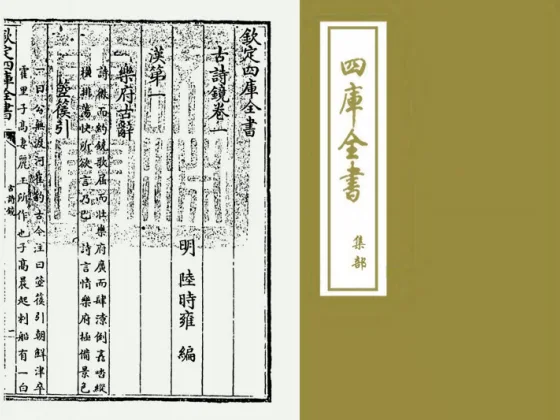 欽定四庫全書
古詩鏡卷一
明 陸時雍 編
漢第一
樂府古辭
詩 而約鐃歌屈而壯樂府廣而肆 倒 縱
橫排蕩快所欲言乃已 詩言情樂府 備景色
箜篌引
一曰公無渡河崔豹古今注曰箜篌引朝鮮津卒
霍里子高妻麗玉所作也子高晨起刺船有一白
欽定四庫全書
古詩鏡
一
四庫全書
集部